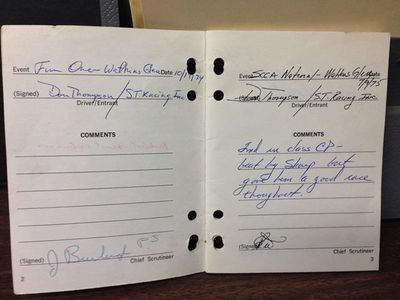 Event Fun One - Watkins Glen Date 10/19/74
(Signed) Don Thompson / ST. Racing Inc
Driver/Entrant
COMMENTS
(Signed) J
Chief Scrutineer
2
Event SCCA National - Watkins Glen Date 7/9/75
Don Thompson / ST. Racing Inc.
Driver/Entrant
COMMENTS
2nd in class CP -
beat by Sharp but
gave him a good race
thoughout.
(Signed)
Chief Scrutineer
3